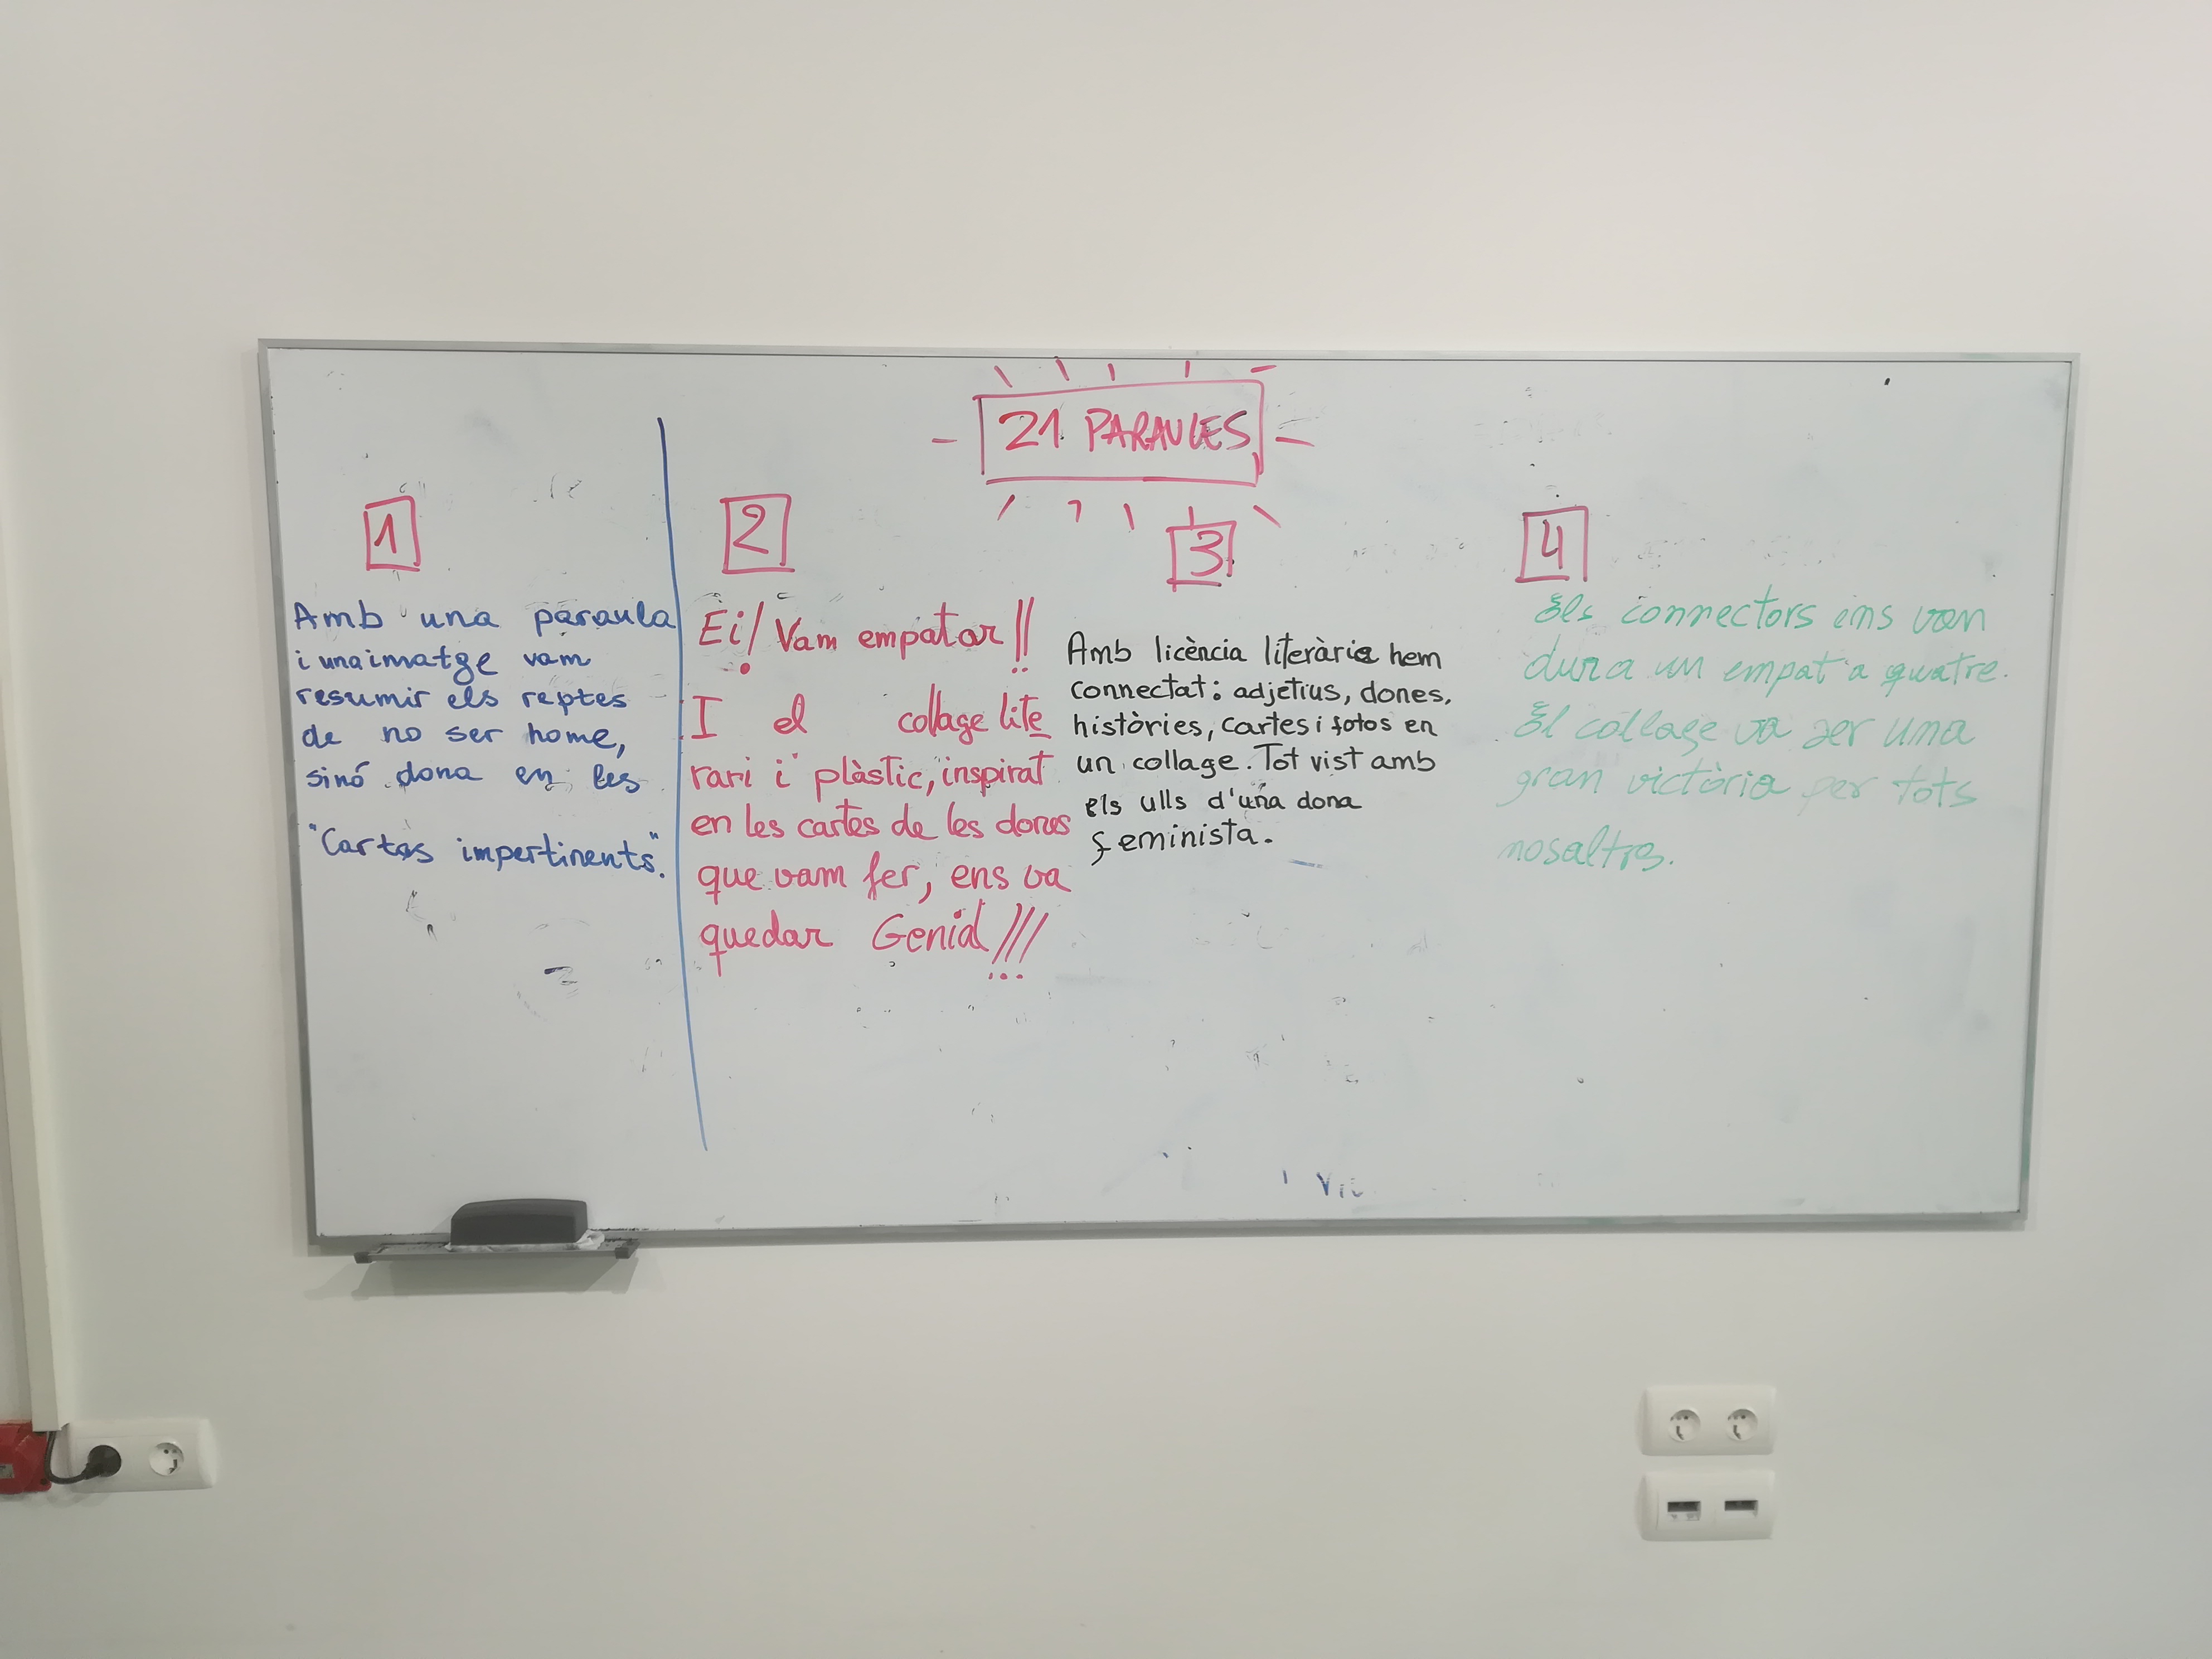 21 PARAULES
1
Amb una paraula
i una imatge vam
resumir els reptes
de no ser home,
sinó dona en les
"Cartes impertinents".
2
Ei! Vam empatar!!
I el collage lite
rari i plàstic, inspirat
en les cartes de les dones
que vam fer, ens va
quedar Genial!!!
3
Amb licència literària hem
connectat: adjetius, dones,
històries, cartes i fotos en
un collage. Tot vist amb
els ulls d'una dona
feminista.
4
Els connectors ens van
dur a un empat a quatre.
El collage va ser una
gran victòria per tots
nosaltres.